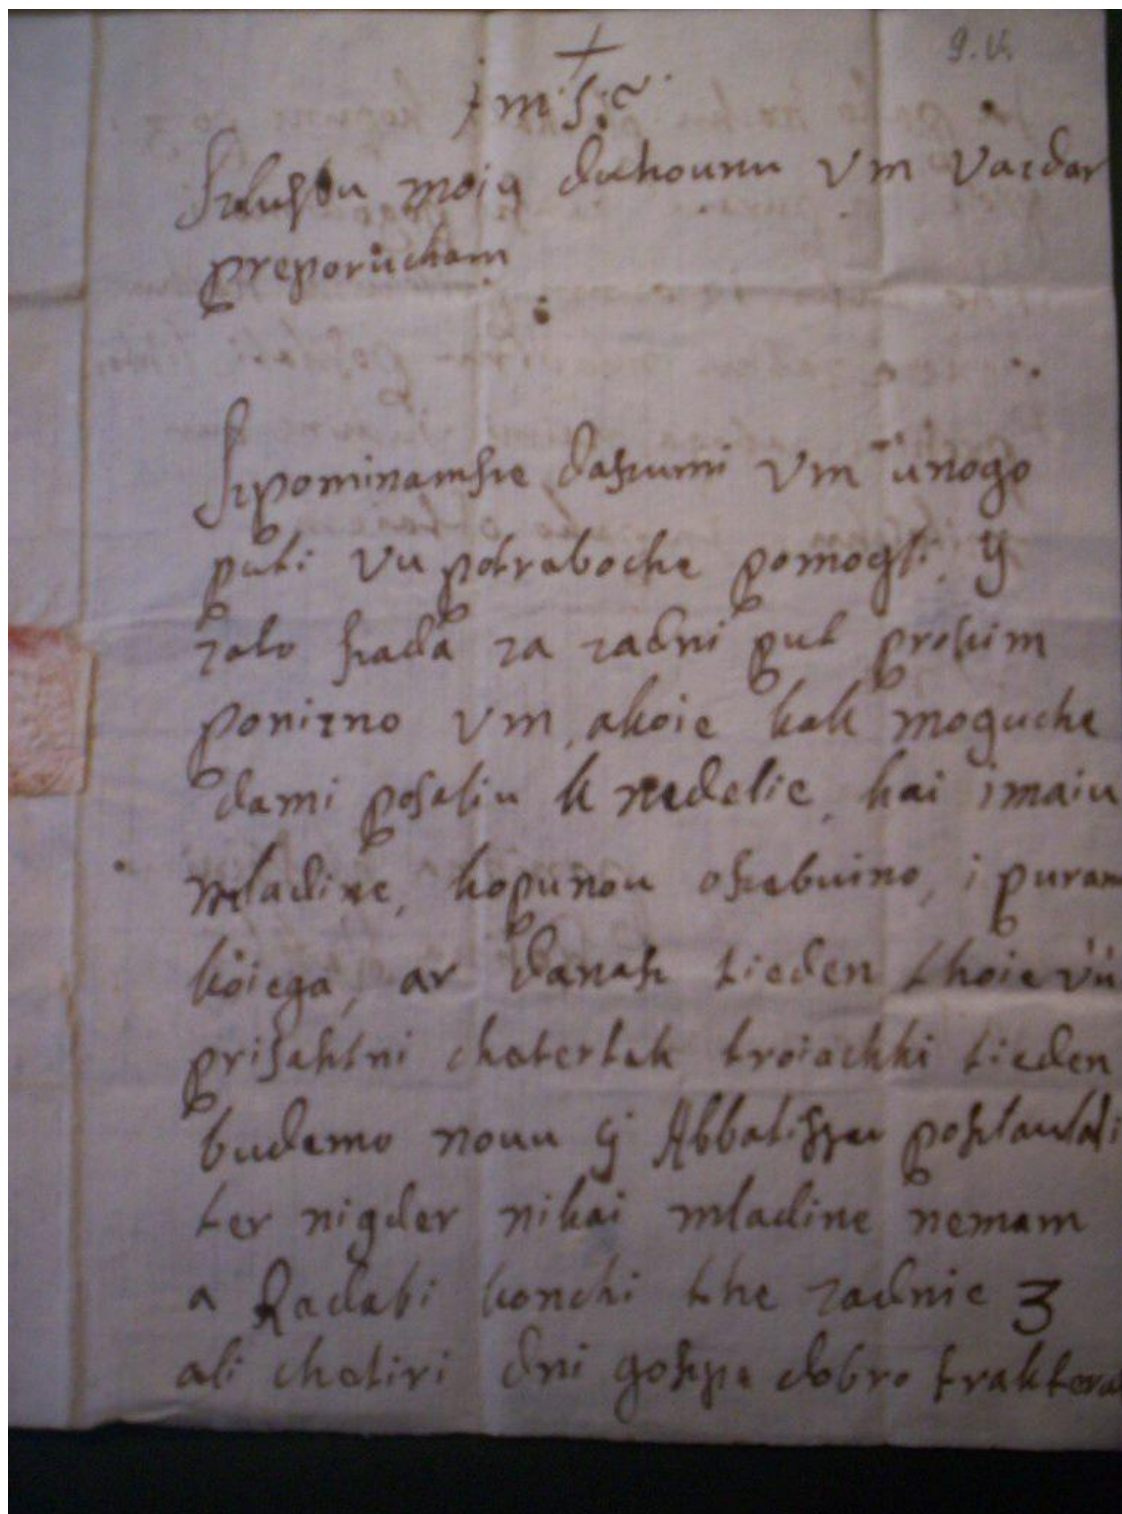 g. V.
J m s c
Szlusbu moiu duhounu Vm Vazdar
preporucham
Szpominamsze daszumi Vm unogo
puti Vu potraboche pomogli, y
zato szada za zadni putproszim
ponizno Vm, akoie kak moguche
dami posaliu k nedelie, kai imaiu
mladine, kopunou oszebuino, i puran
koiega, ar danasz tieden thoie vu
prisasztni chetertak troiachki tieden
budemo nouu y Abbatiszu posztaulali
ter nigder nikai mladine nemam
a Radabi konchi the zadnie 3
ali chetiri dni goszpe dobro traktera